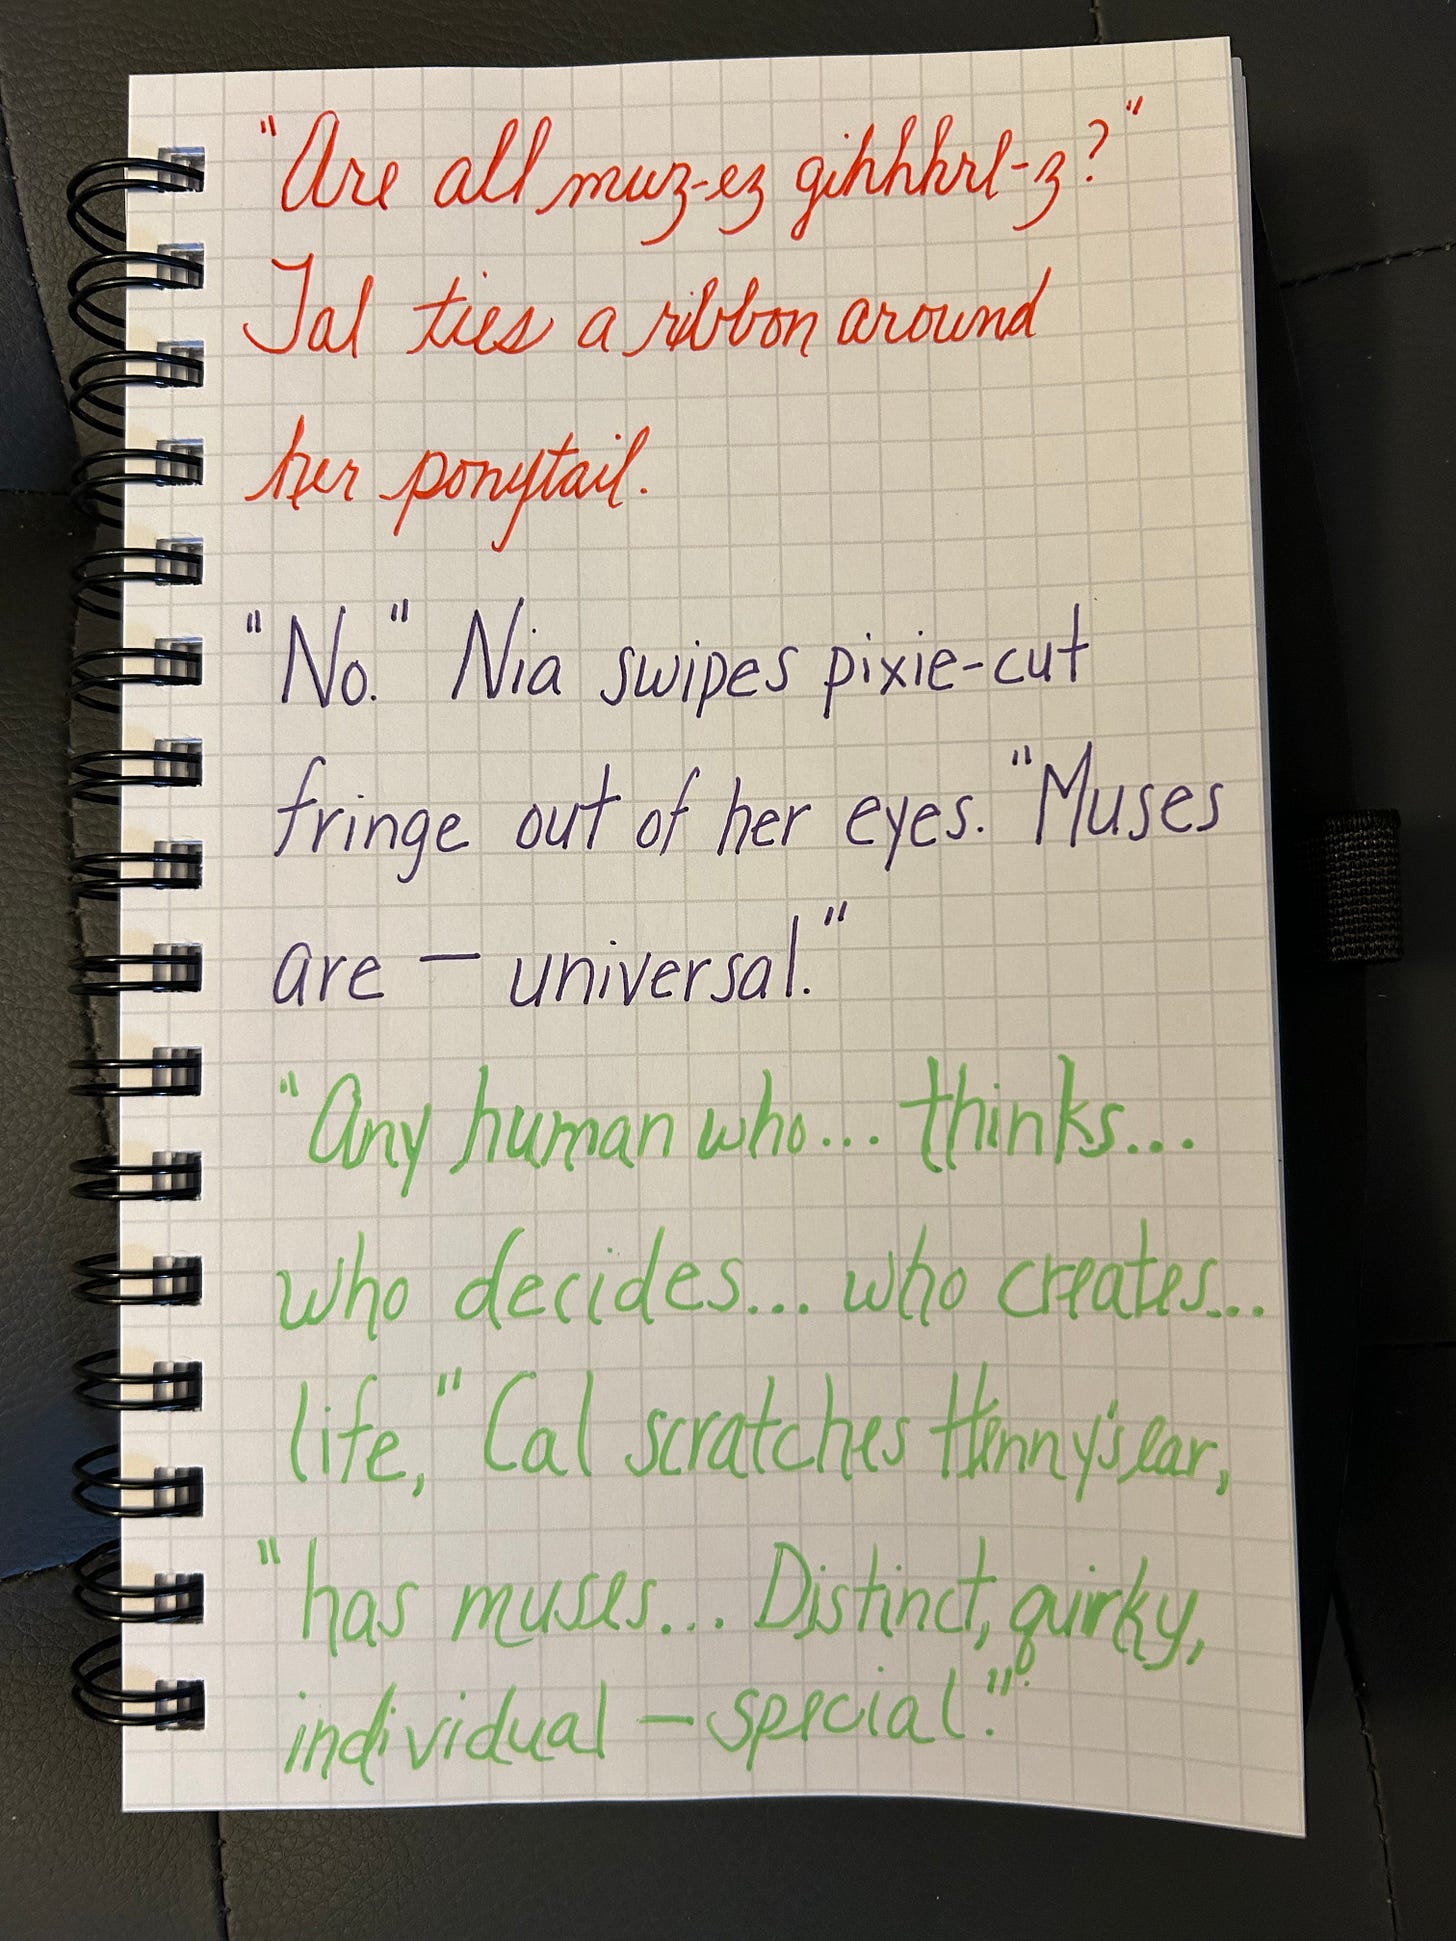 "Are all muz-ez gihhhrl-z?"
Tal ties a ribbon around
her ponytail.
"No." Nia swipes pixie-cut
fringe out of her eyes. "Muses
are — universal."
"Any human who... thinks...
who decides... who creates...
life," Cal scratches Henny's ear,
"has muses... Distinct, quirky,
individual — special."